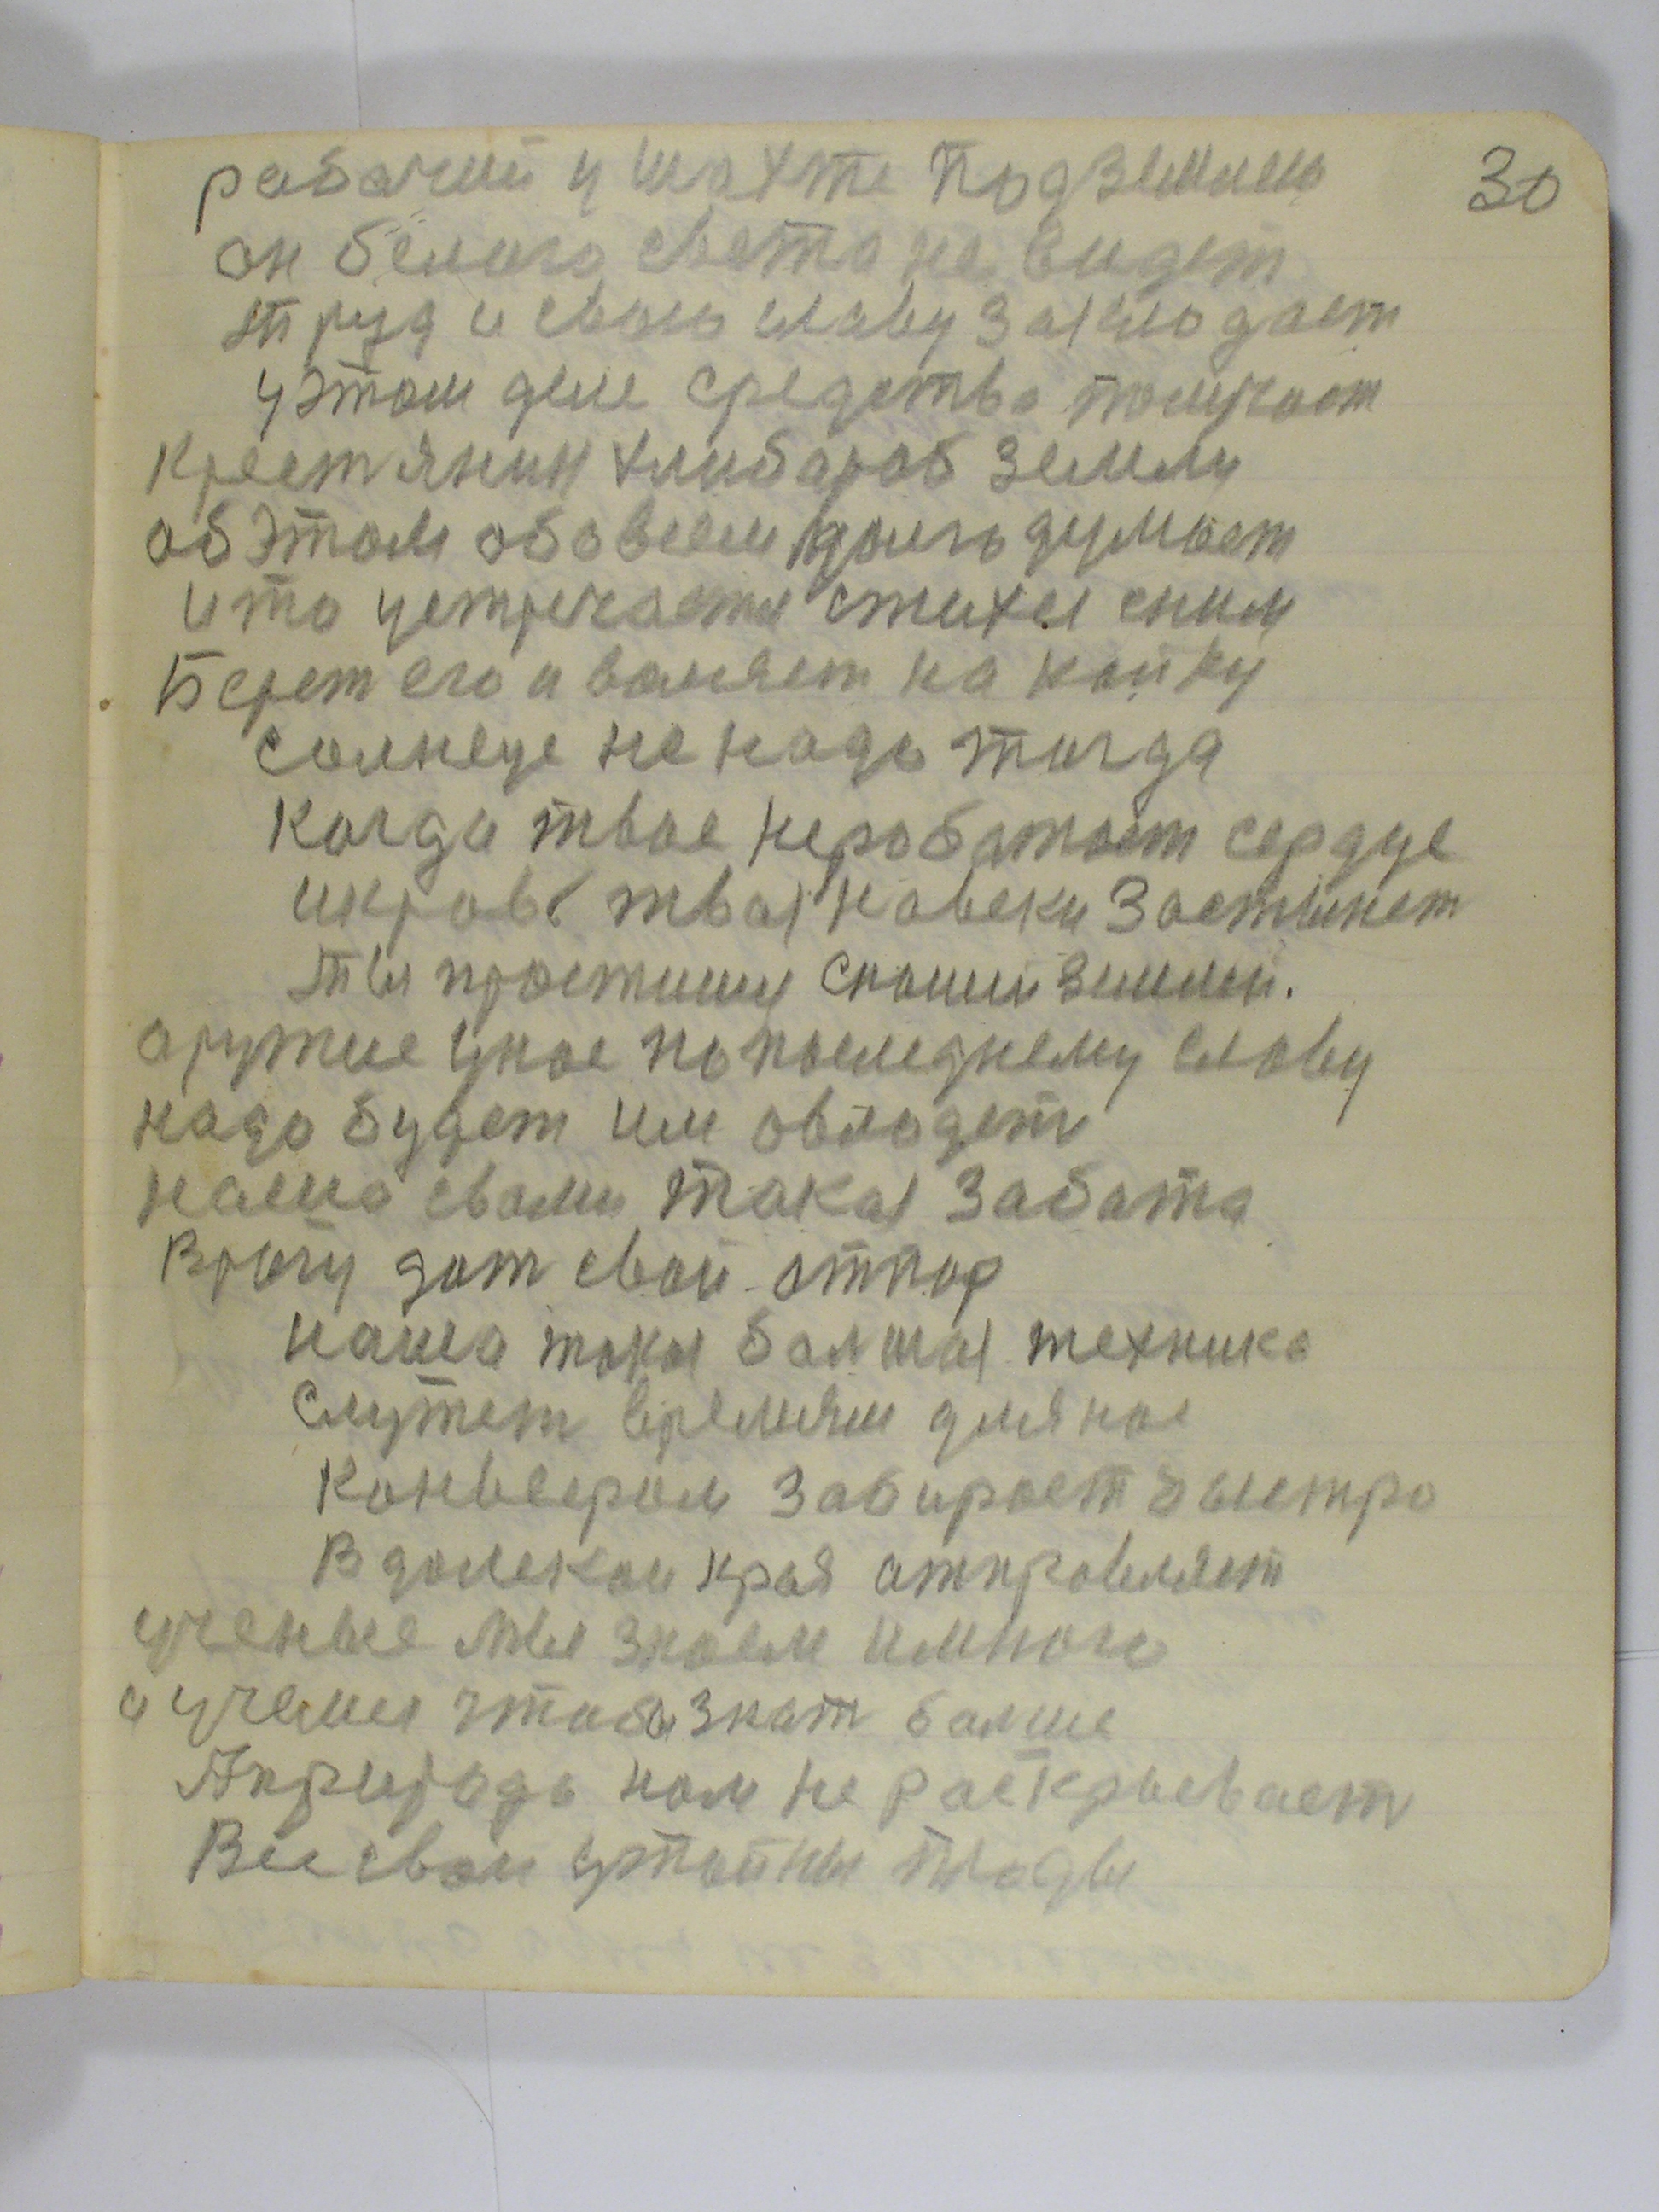 рабочий у шахте Подземлею 30
он белого света не видет
Труд и свою славу закладает
у этом деле средства получает
Крестянин хлибароб земли
об этом обо всем долго думает
и то устречается стихея сним
Берет его и валяет на койку
солнеце не надо тогда
Когда твое неработает сердце
икровь твоя навеки Застынет
Ты простишся снашей землей.
оружие унас по последнему слову
надо будет им овладет
наша свами такая Забата
Врагу дат свой отпор
наша такая балшая техника
Служет времиям для нас
Конвеером забирает быстро
В далекои края атправляет
ученые мы знаем имного
а учемся чтоба знат болше
Априрода нам не раскрывает
Все свои утайны плоды